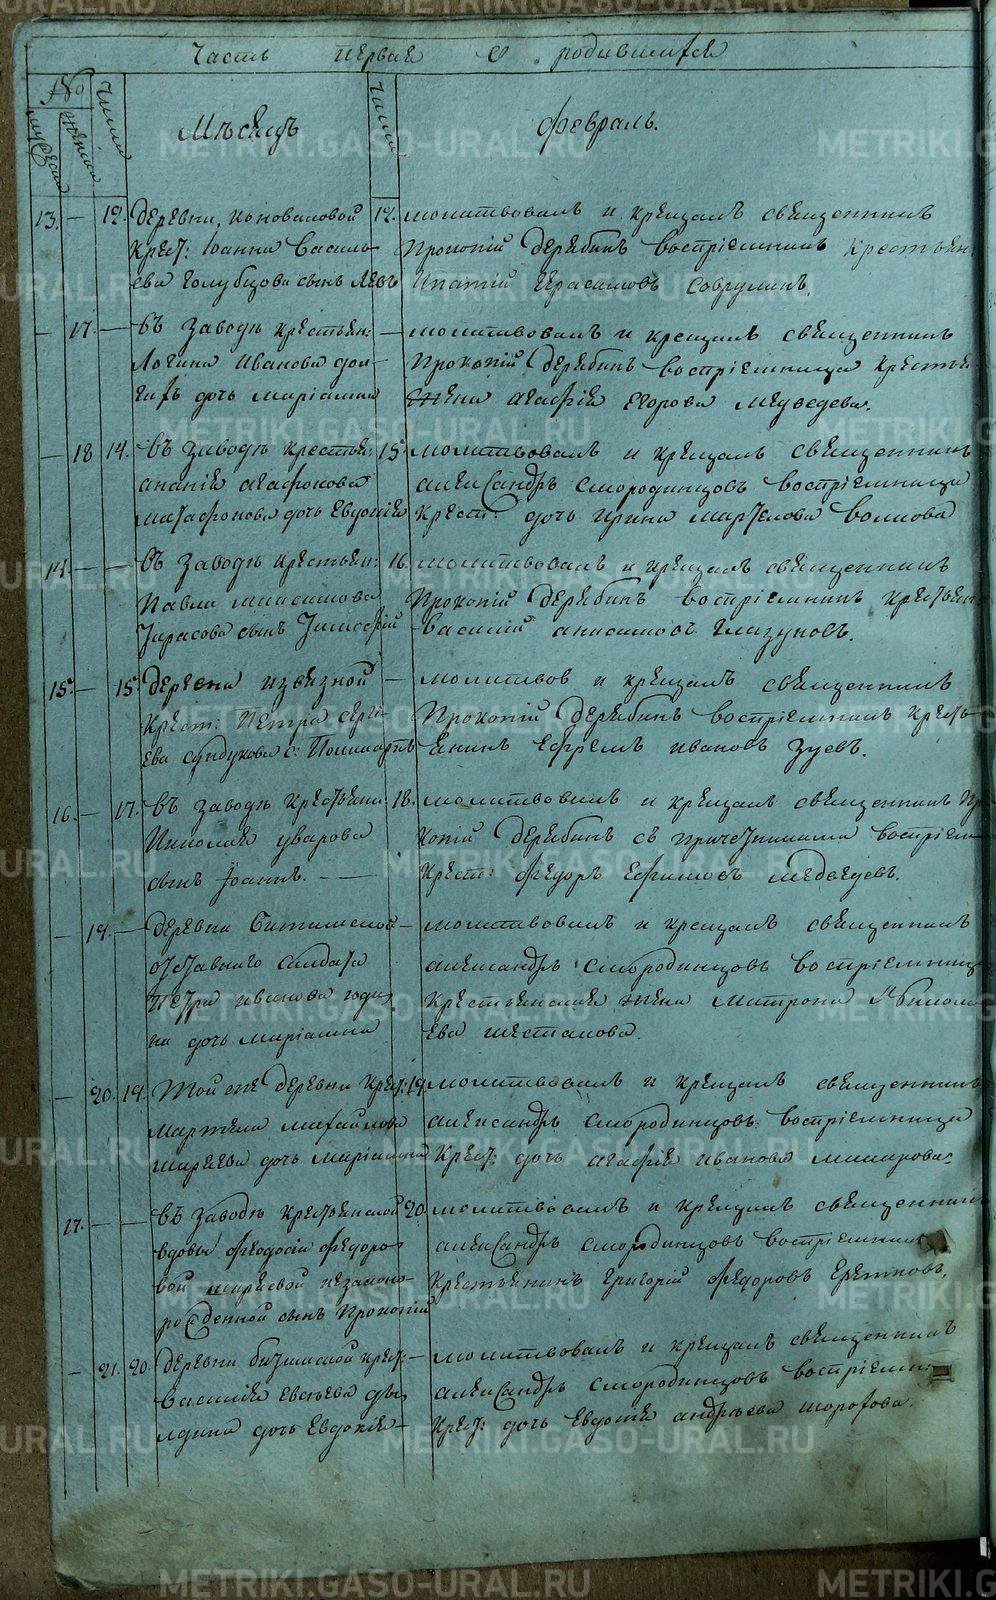 Часть первая о родившихся
№ Число Месяцъ Число Февраль.
мужеска женска
13. — 12. деревни Коноваловой 12. молитвовалъ и крещалъ священникъ
Крест: Іоанна Василь Прокопій Дерябинъ воспріемникъ крестьян
ева Голубцова сынъ Левъ Ипатій Герасимовъ
— 17. — въ заводѣ крестьян: — молитвовалъ и крещалъ священникъ
Логина Иванова Прокопій Дерябинъ воспріемница крестья
дочь Маріамна жена Агафія Егорова Медведева.
— 18 14. въ заводѣ крестьян: 15 молитвовалъ и крещалъ священникъ
Ананія Агафонова Александръ Смородинцовъ воспріемница
дочь Евдокія крест: дочь Ирина Маркелова Волкова
14. — — въ заводѣ крестьян: 16. молитвовалъ и крещалъ священникъ
Павла Прокопій Дерябинъ воспріемникъ крестьян
Тарасова сынъ Тимофей Василій Анисимовъ Глазуновъ.
15. — 15. деревни Извязной — молитвов и крещалъ священникъ
Крест: Петра Серги Прокопій Дерябинъ воспріемникъ кресть
ева Сундукова с: янинъ Ефремъ Ивановъ Зуевъ.
16. — 17. въ заводѣ крестьяни: 18. молитвовалъ и крещалъ священникъ Про
Николая Уварова копій Дерябинъ съ причетниками воспріем
сынъ Іоаннъ. — Крест: Федоръ Ефимовъ Медведевъ.
— 19. — деревни — молитвовалъ и крещалъ священникъ
отставнаго солдата Александръ Смородинцовъ воспріемница
Петра Иванова Годи крестьянская жена Матрона Никола
на дочь Маріамна ева Шесталова.
— 20. 19. Той же деревни крест: 19. молитвовалъ и крещалъ священникъ
Маркела Михайлова Александръ Смородинцовъ воспріемница
Ширяева дочь Маріамна Крест: дочь Агафія Иванова
17. — — въ заводѣ крестьянской 20. молитвовалъ и крещалъ священникъ
вдовы Феодосіи Федоро Александръ Смородинцовъ воспріемник
вой Ширяевой незакона Крестьянинъ Григорій Федоровъ
рожденной сынъ Прокопій
— 21. 20. деревни Битимской крест: — молитвовалъ и крещалъ священникъ
Василія Евсѣева Дья Александръ Смородинцовъ воспріемн:
дочь Евдокія — Крест: дочь Евдокія Андрѣева
METRIKI.GASO-URAL.RU